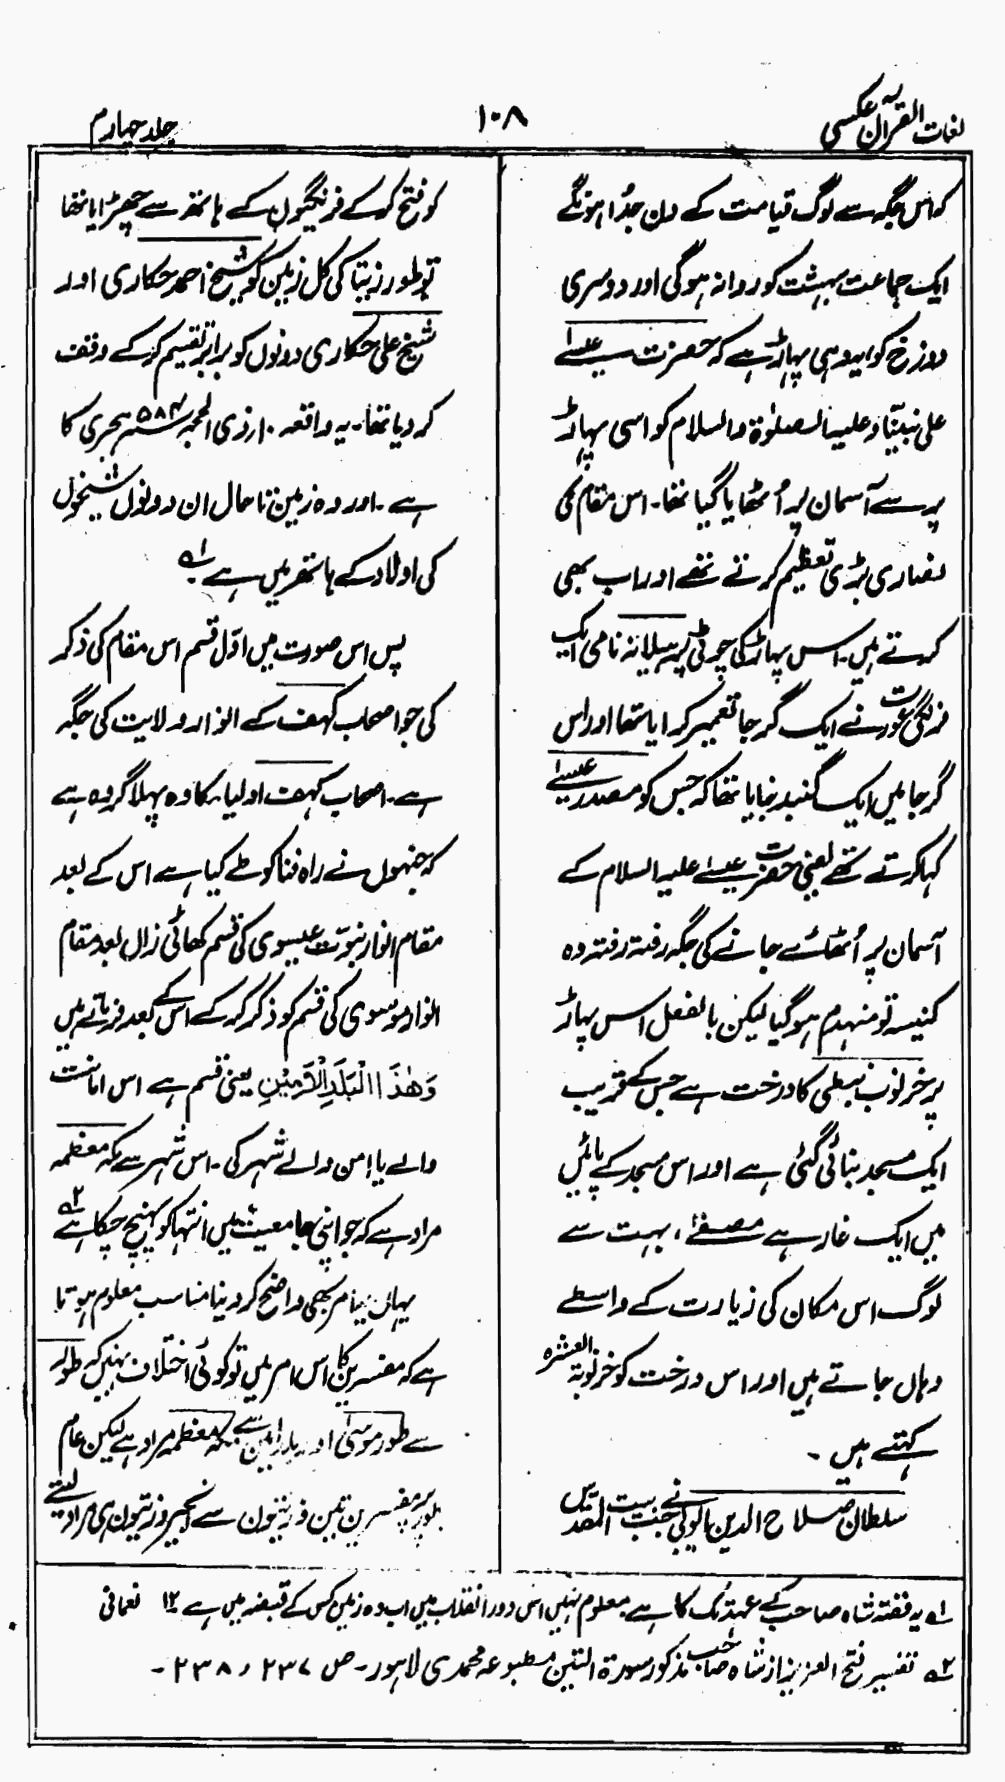 لغات القرآن عکسی
۱۰۸
جلد چہارم
کہ اس جگہ سے لوگ قیامت کے دن جدُا ہونگے
ایک جماعت بہشت کو روانہ ہوگی اور دوسری
دوزخ کو ایہ وہی پہاڑ ہے کہ حضرت سب عیسےٰ
علی نبیّنا و علیہ الصلوٰۃ والسلام کو اسی پہاڑ
پر سے آسمان پر اُٹھایا گیا تھا۔ اس مقام کی
نصاری بڑی تعظیم کرتے تھے اور اب بھی
کرتے ہیں۔ اس پہاڑ کی چوٹی پر ہیلانہ نامی ایک
فرنگی عورت نے ایک گرجا تعمیر کرایا تھا اور اس
گرجا میں ایک گنبد بنایا تھا کہ جس کو مصدر عیسےٰ
کہا کرتے تھے یعنی حضرت عیسےٰ علیہ السلام کے
آسمان پر اُٹھائے جانے کی جگہ رفتہ رفتہ وہ
کنیسہ تو منہدم ہو گیا لیکن بالفعل اس پہاڑ
پر خرنوب نبطی کا درخت ہے جس کے قریب
ایک مسجد بنائی گئی ہے اور اس مسجد کے پائیں
میں ایک غار ہے مصفےٰ، بہت سے
لوگ اس مکان کی زیارت کے واسطے
وہاں جاتے ہیں اور اس درخت کو خرنوبۃ العشرہ
کہتے ہیں ۔
سلطان صلاح الدین ایوبی نے جب بیت المقدس
کو فتح کر کے فرنگیوں کے ہاتھ سے چھڑایا تھا
تو طور زیتا کی کل زمین کو شیخ احمد حکاری اور
شیخ علی حکاری دونوں کو برابر تقسیم کر کے وقف
کر دیا تھا۔ یہ واقعہ ۱۰ر ذی الحجہ ۵۸۴ہجری کا
ہے ۔ اور وہ زمین تا حال ان دونوں شیخوں
کی اولاد کے ہاتھ میں ہے ۱ھ
پس اس صورت میں اوّل قسم اس مقام کی ذکر
کی جو اصحاب کہف کے انوار ولایت کی جگہ
ہے۔ اصحاب کہف اولیاء کا وہ پہلا گروہ ہے
کہ جنہوں نے راہ فنا کو طے کیا ہے اس کے بعد
مقام انوار نبوّت عیسوی کی قسم کھائی زاں بعد مقام
انوار موسوی کی قسم کو ذکر کر کے اس کے بعد فرماتے ہیں
وَهٰذَا الْبَلَدِ الْاَمِيْنِ یعنی قسم ہے اس امانت
والے یا امن والے شہر کی ۔ اس شہر سے مکہ معظمہ
مراد ہے کہ جو اپنی جامعیت میں انتہا کو پہنچ چکا ہے ۲ھ
یہاں یہ امر بھی واضح کر دینا مناسب معلوم ہوتا
ہے کہ مفسرین کا اس امر میں تو کوئی اختلاف نہیں کہ طور
سے طور موسیٰ اور بلد امین سے مکہ معظمہ مراد ہے لیکن عام
طور پر مفسرین تین و زیتون سے انجیر و زیتون ہی مراد لیتے
۱ھ یہ قصّہ شاہ صاحب کے عہد تک کا ہے معلوم نہیں اس دور انقلاب میں اب وہ زمین کس کے قبضہ میں ہے ۱۲ نعمانی
۲ھ تفسیر فتح العزیز از شاہ صاحب مذکور سورۃ التین مطبوعہ محمدی لاہور۔ ص ۲۳۷ و ۲۳۸ ۔